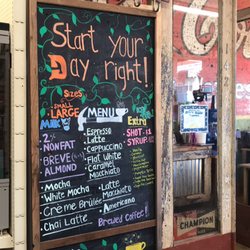 Start your
Day right!
Sizes
SMALL
LARGE
MILK
2%
NONFAT
BREVE
ALMOND
MENU
Espresso
Latte
Cappuccino
Flat White
Caramel
Macchiato
Extra
SHOT
SYRUP
Mocha
White Mocha
Crème Brûlée
Chai Latte
Latte
Macchiato
Americano
Brewed Coffee!
CHAMPION